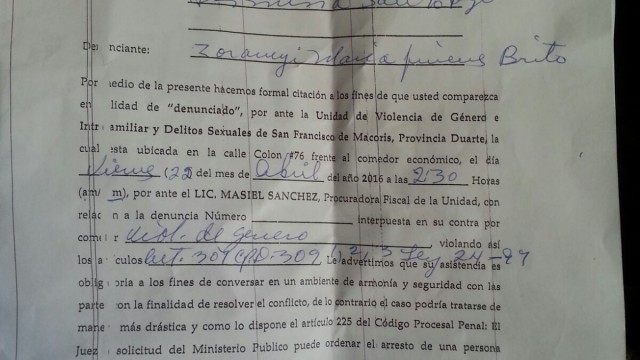 Denciante: María Brito
Por medio de la presente hacemos formal citación a los fines de que usted comparezca
en lidad de "denunciado", por ante la Unidad de Violencia de Género e
Intr amiliar y Delitos Sexuales de San Francisco de Macoris, Provincia Duarte, la
cual esta ubicada en la calle Colon #76 frente al comedor económico, el día
Vierne (22 del mes de Abril del año 2016 a las 2:30 Horas
(am/ m), por ante el LIC. MASIEL SANCHEZ, Procuradora Fiscal de la Unidad, con
relac n a la denuncia Número interpuesta en su contra por
com r Viol. de genero, violando así
los a culos art. 309 CPD-309 1, 2, 3 Ley 24-97 Le advertimos que su asistencia es
oblig oria a los fines de conversar en un ambiente de armonía y seguridad con las
parte con la finalidad de resolver el conflicto, de lo contrario el caso podría tratarse de
mane más drástica y como lo dispone el artículo 225 del Código Procesal Penal: El
Juez solicitud del Ministerio Publico puede ordenar el arresto de una persona